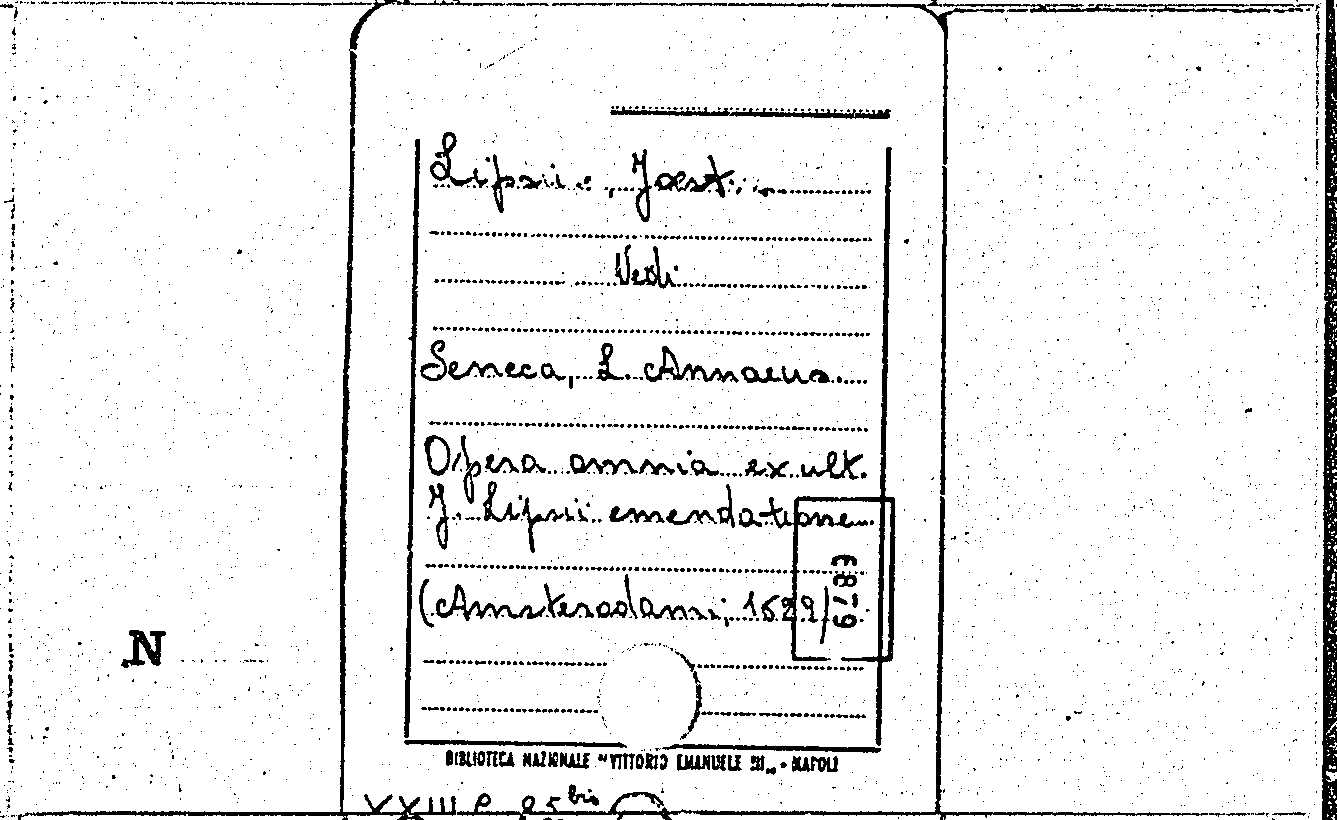 Lipsiu, Joest.
Vedi
Seneca, L. Annaeus
Opera omnia ex ult.
J. Lipsii emendatione
(Amsterodami, 1629)
E879
N
BIBLIOTECA NAZIONALE "VITTORIO EMANUELE III„ - NAPOLI